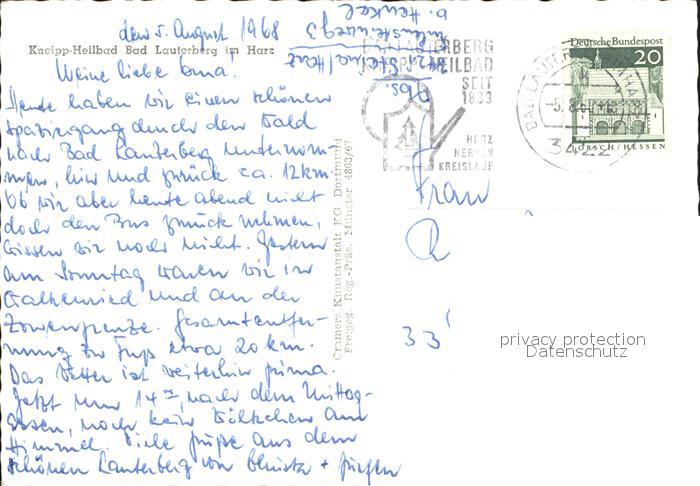 den 5. August 1968
Kneipp-Heilbad Bad Lauterberg im Harz
Meine liebe Oma!
Heute haben wir einen schönen
Spaziergang durch den Wald
nach Bad Lauterberg unternom-
men, hin und zurück ca. 12 km.
Ob wir aber heute abend nicht
doch den Bus zurück nehmen,
wissen wir noch nicht. Gestern
am Sonntag waren wir in
Walkenried und an der
Zonengrenze. Gesamtentfer-
nung zu Fuß etwa 20 km.
Das Wetter ist weiterhin prima.
Jetzt nur 14°°, nach dem Mittag-
essen, noch kein Wölkchen am
Himmel. Viele Grüße aus dem
schönen Lauterberg von + Jürgen
Abs.
3421 Steina/Harz
b. Henkel
Cramers Kunstanstalt KG Dortmund
Freigeg. Reg.-Präs. Münster 4863/67
BAD LAUTERBERG
KNEIPPHEILBAD
SEIT
1839
HERZ
NERVEN
KREISLAUF
BAD LAUTERBERG
-5.8.68
3422
Deutsche Bundespost
20
LORSCH/HESSEN
Frau
33
privacy protection
Datenschutz